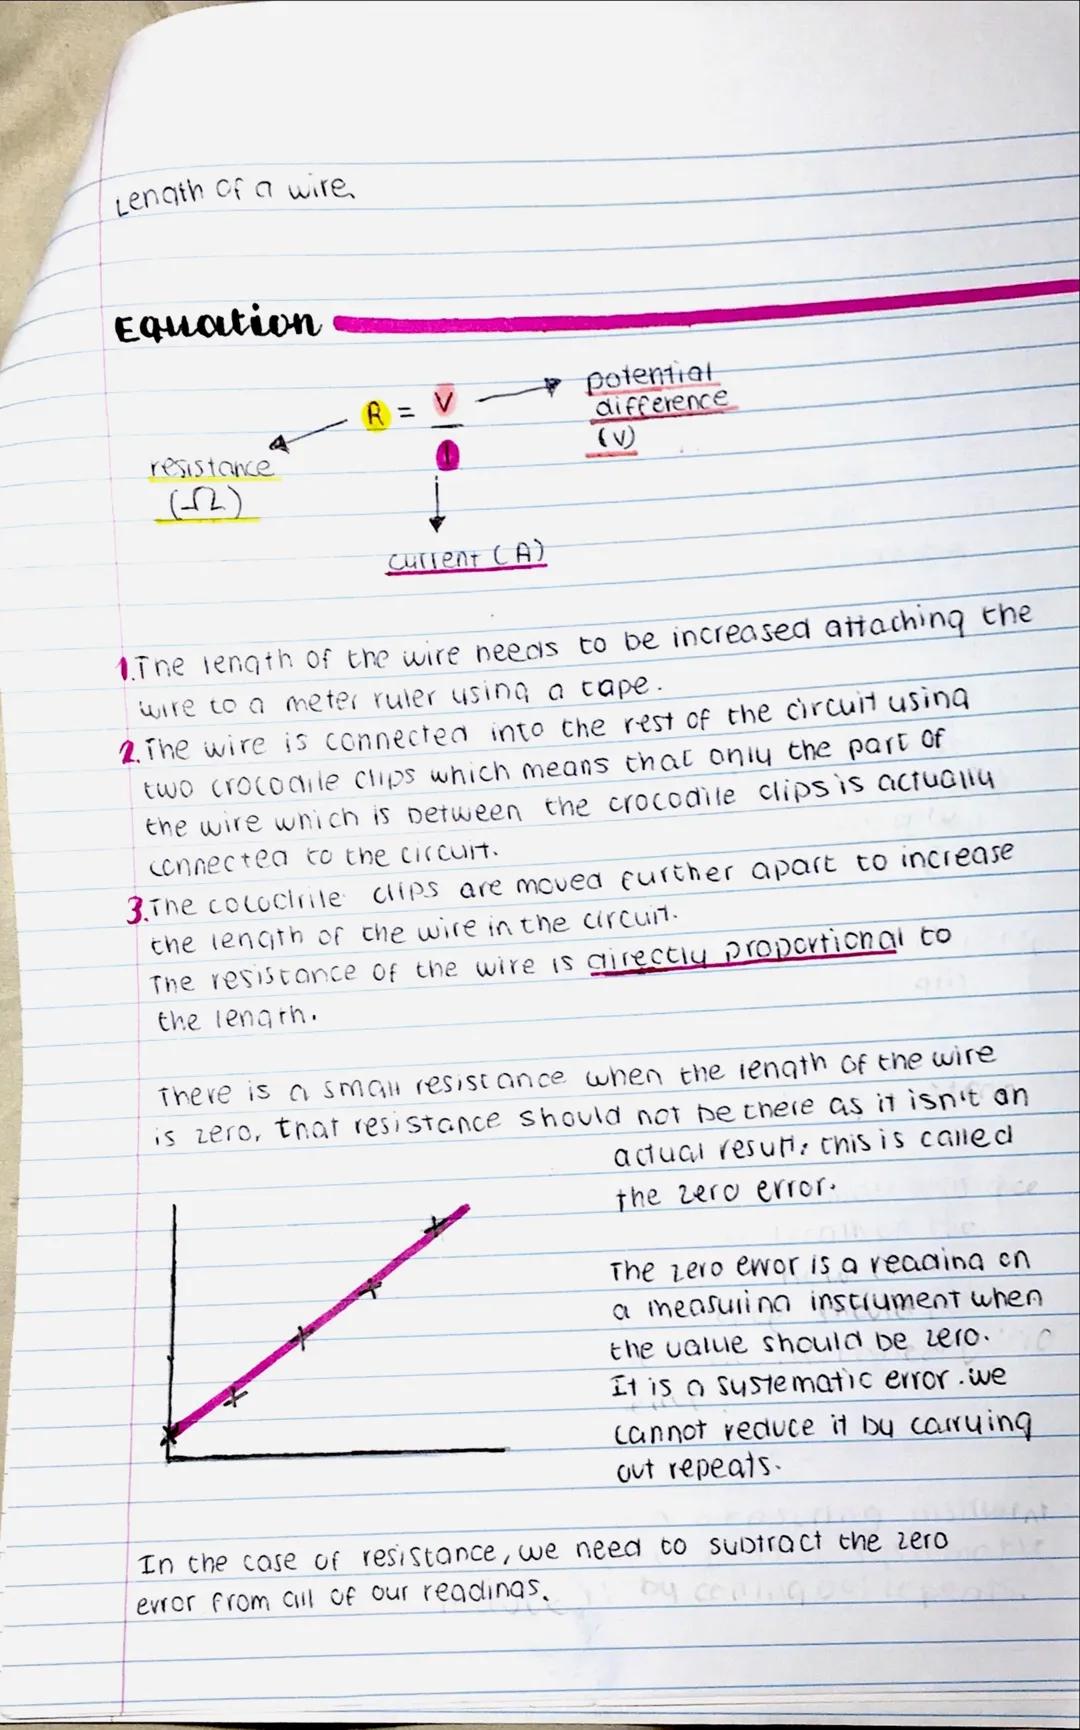 Length of a wire
Equation
R = V
I
potential
difference
(V)
resistance
(Ω)
current (A)
1.The length of the wire needs to be increased attaching the
wire to a meter ruler using a tape.
2.The wire is connected into the rest of the circuit using
two crocodile clips which means that only the part of
the wire which is between the crocodile clips is actually
connected to the circuit.
3.The cocodrile clips are moved further apart to increase
the length of the wire in the circuit.
The resistance of the wire is directly proportional to
the length.
There is a small resistance when the length of the wire
is zero, that resistance should not be there as it isn't an
actual result: this is called
the zero error.
The zero error is a reading on
a measuring instrument when
the value should be zero.
It is a systematic error. we
cannot reduce it by carrying
out repeats.
In the case of resistance, we need to subtract the zero
error from all of our readings.